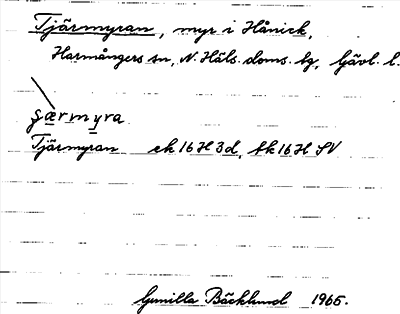 Tjärmyran, myr i Hånick,
Harmångers sn, N. Häls. doms. tg, Gävl. l.
ʃærmyra
Tjärmyran ek 16 H 3d, tk 16 H SV
Gunilla Bäcklund 1965.